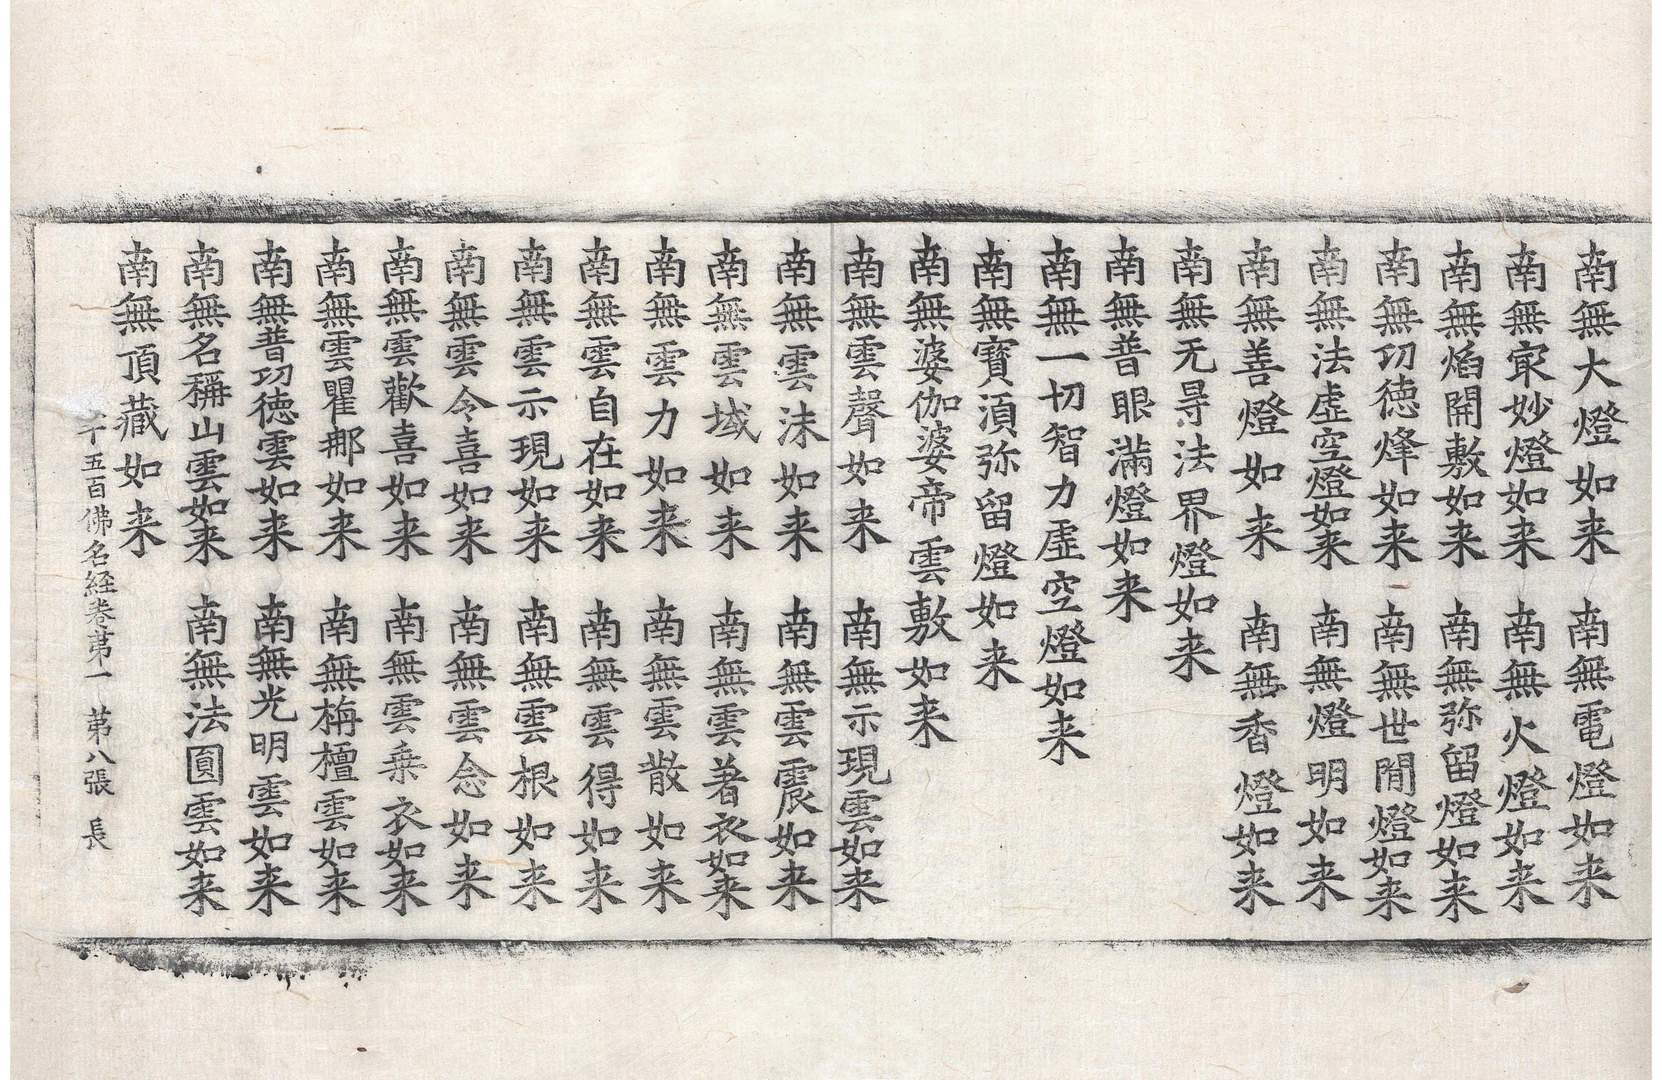 南無大燈如来　南無電燈如来
南無㝡妙燈如来　南無火燈如来
南無焰開敷如来　南無弥留燈如来
南無功徳烽如来　南無世間燈如来
南無法虛空燈如来　南無燈明如来
南無善燈如来　南無香燈如来
南無无㝵法界燈如来
南無普眼滿燈如来
南無一切智力虛空燈如来
南無寳湏弥留燈如来
南無婆伽婆帝雲敷如来
南無雲聲如来　南無示現雲如来
南無雲沫如来　南無雲震如来
南無雲域如来　南無雲著衣如来
南無雲力如来　南無雲散如来
南無雲自在如来　南無雲得如来
南無雲示現如来　南無雲根如来
南無雲令喜如来　南無雲念如来
南無雲歡喜如来　南無雲乗衣如来
南無雲瞿那如来　南無栴檀雲如来
南無普功徳雲如来　南無光明雲如来
南無名稱山雲如来　南無法圓雲如来
南無頂藏如来
千五百佛名経卷苐一　苐八張　長